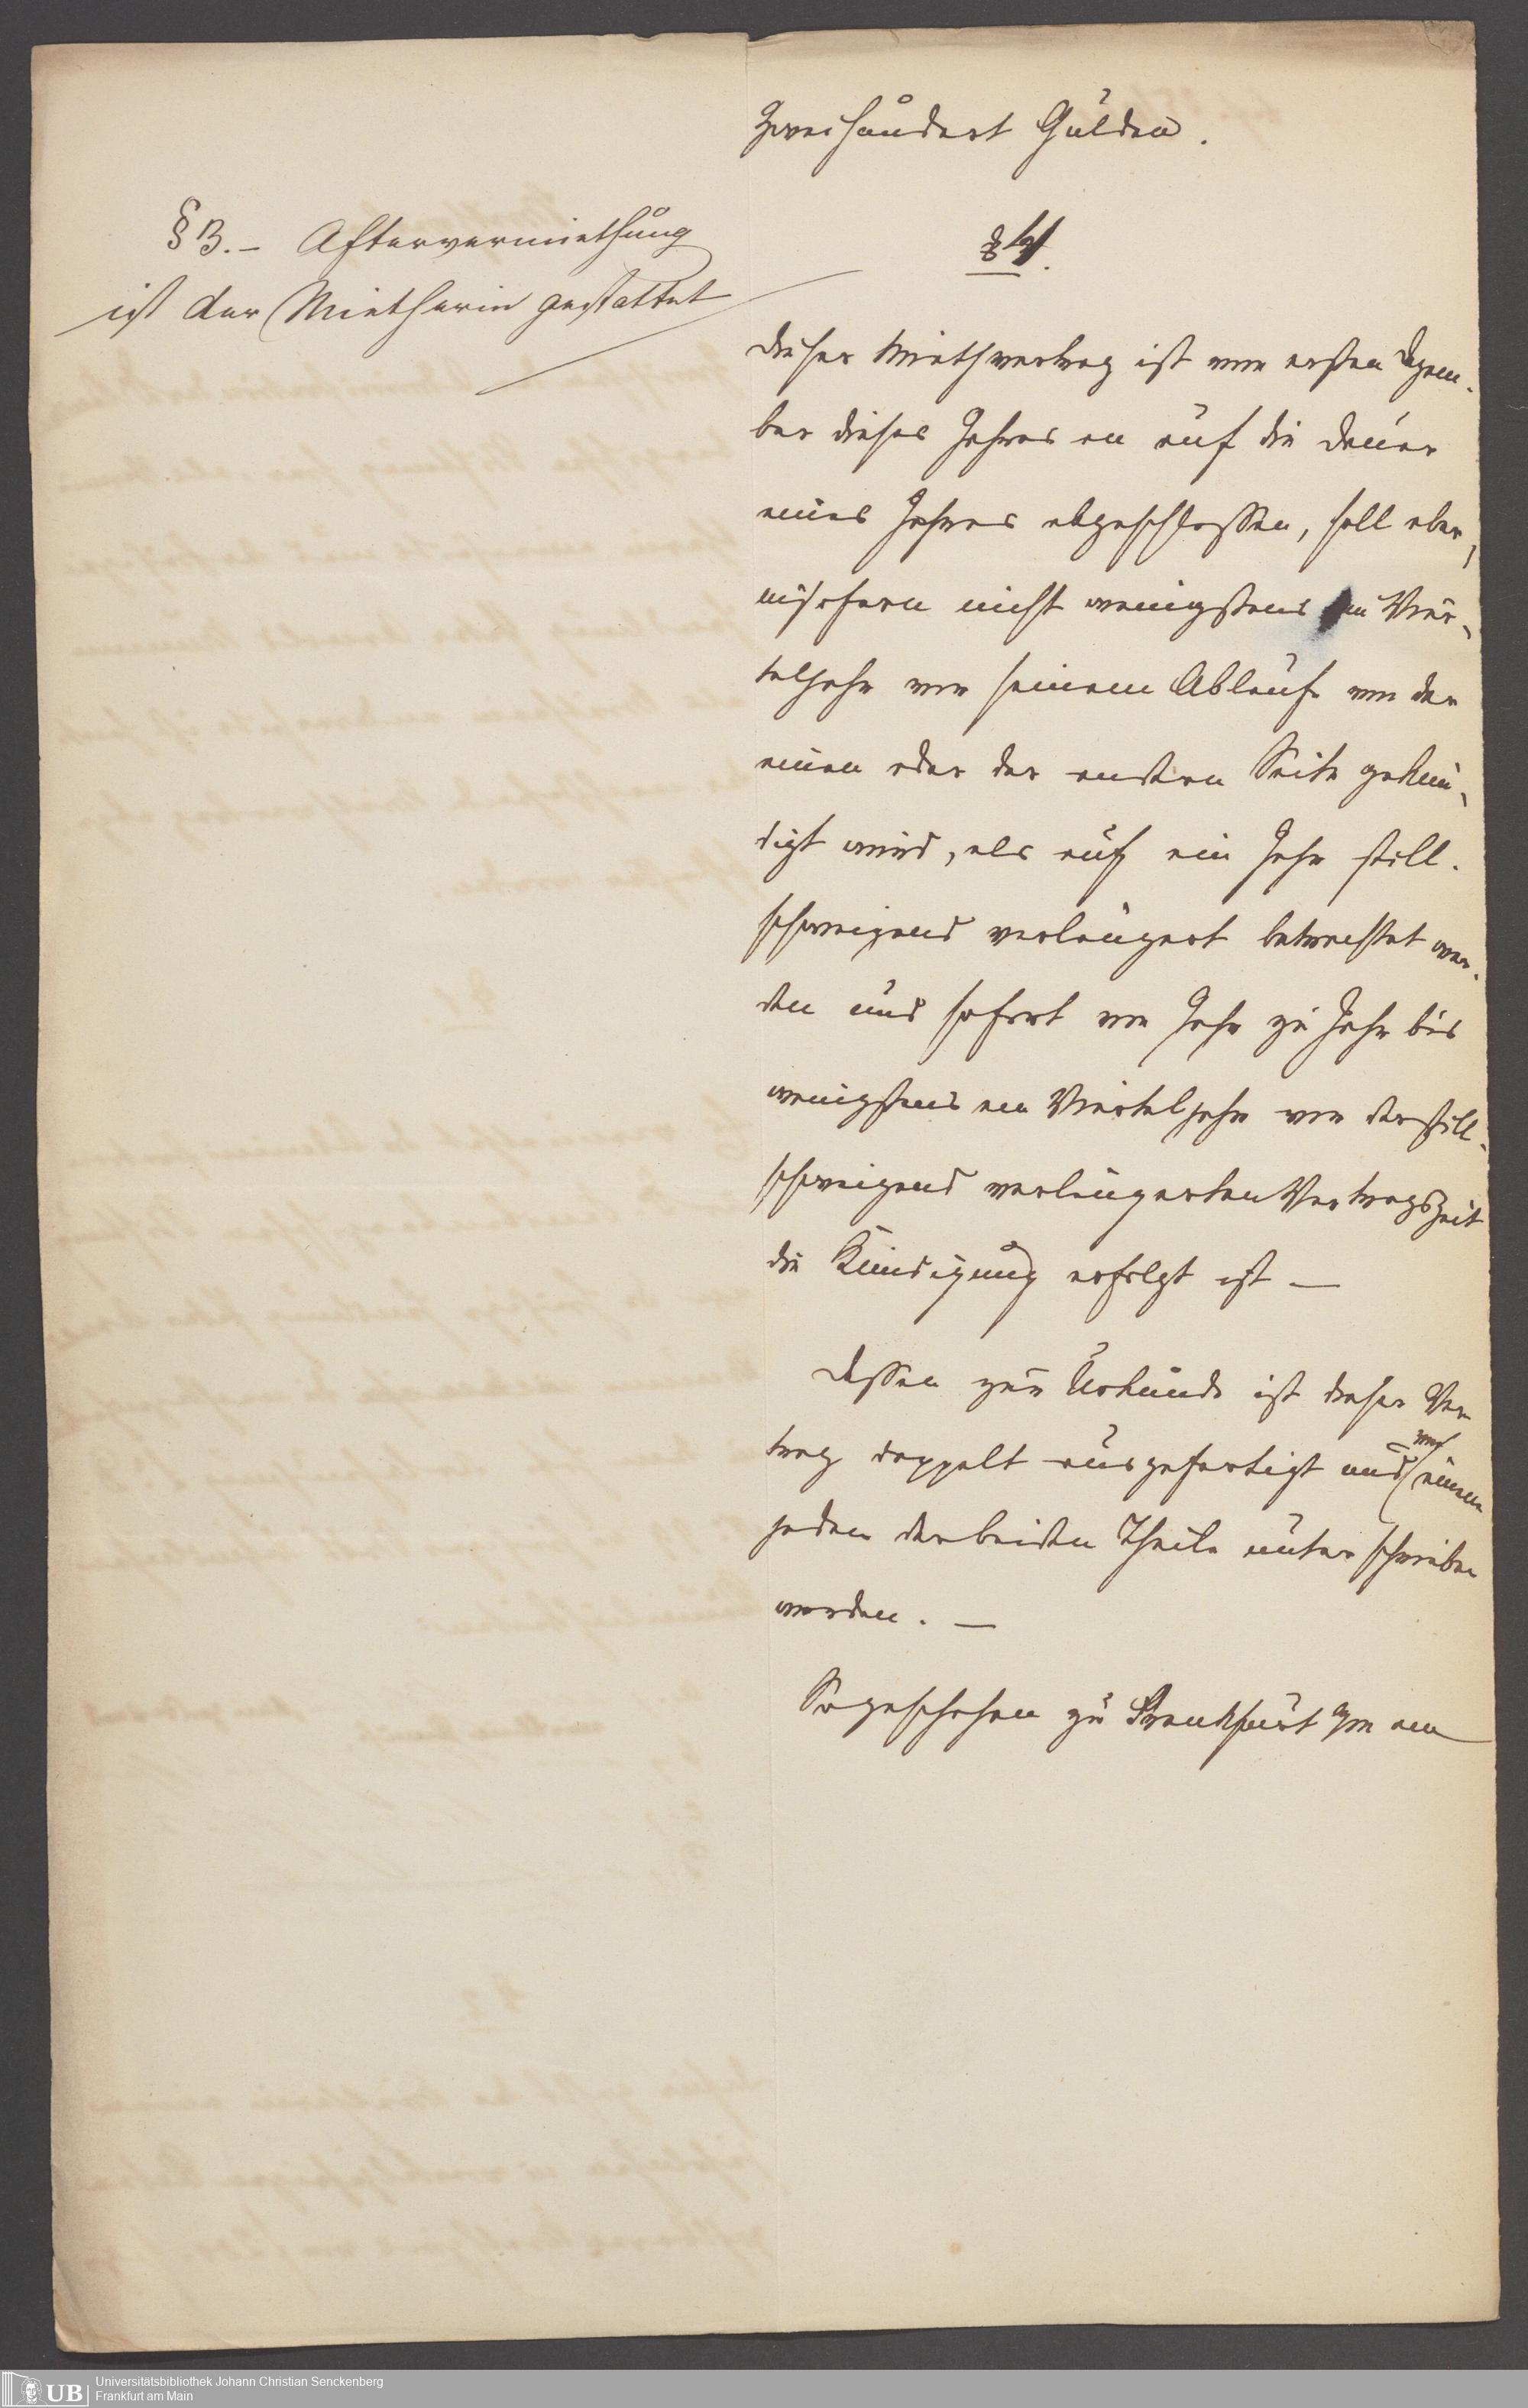 zweihundert Gulden.
§ 3. – Aftervermiethung
ist der Mietherin gestattet
§ 4.
Dieser Miethvertrag ist vom ersten Dezem-
ber dieses Jahres an auf die Dauer
eines Jahres abgeschlossen, soll aber,
insofern nicht wenigstens ein Vier-
teljahr vor seinem Ablauf von der
einen oder der andern Seite gekün-
digt wird, als auf ein Jahr still-
schweigend verlängert betrachtet wer-
den und sofort von Jahr zu Jahr bis
wenigstens ein Vierteljahr vor der still-
schweigend verlängerten Vertragszeit
die Kündigung erfolgt ist —
Dessen zur Urkunde ist dieser Ver
trag doppelt ausgefertigt und von einem
jeden der beiden Theile unterschrieben
worden. —
So geschehen zu Frankfurt a/m am
Universitätsbibliothek Johann Christian Senckenberg
Frankfurt am Main
UB